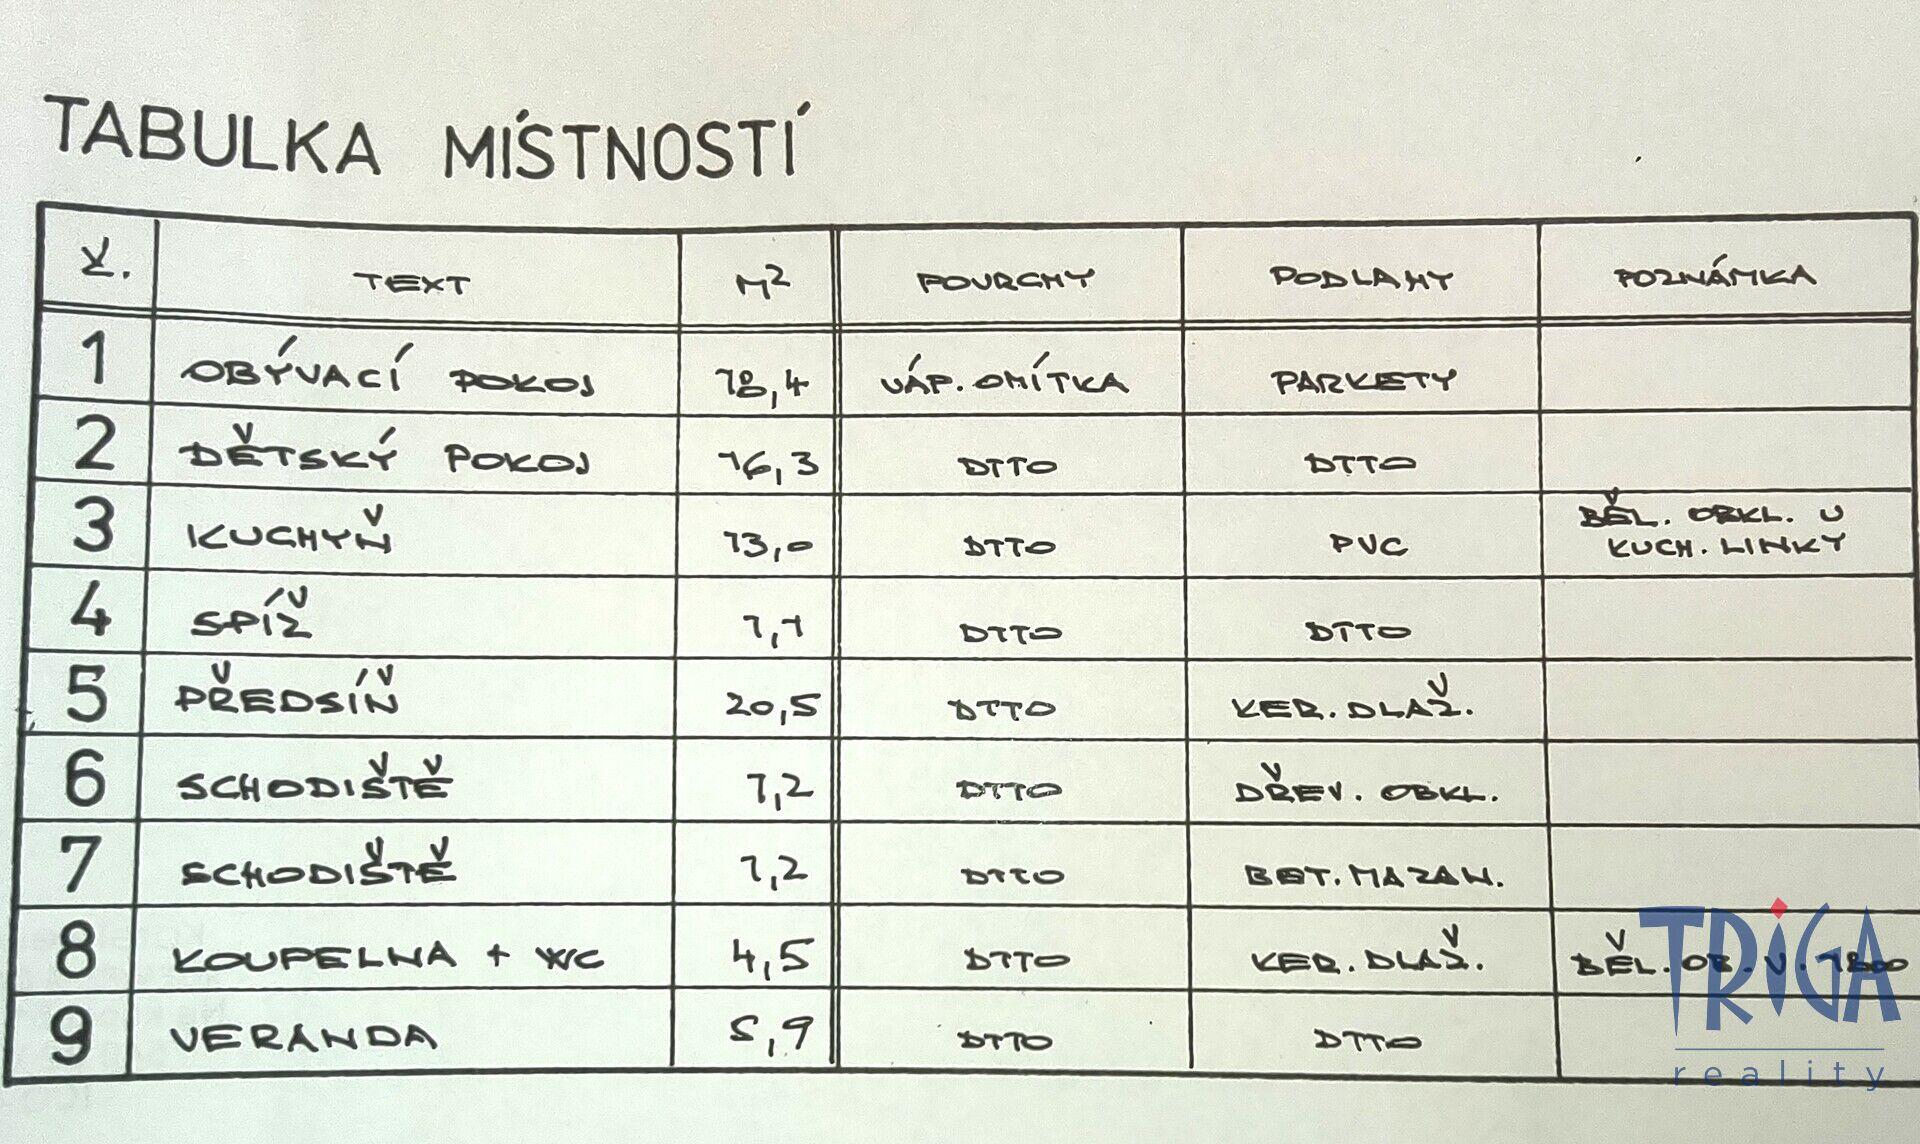 TABULKA MÍSTNOSTÍ
Č. TEXT M² POVRCHY PODLAHY POZNÁMKA
1 OBÝVACÍ POKOJ 18,4 VÁP. OMÍTKA PARKETY
2 DĚTSKÝ POKOJ 16,3 DTTO DTTO
3 KUCHYŇ 13,0 DTTO PVC BĚL. OBKL. U
KUCH. LINKY
4 SPÍŽ 1,1 DTTO DTTO
5 PŘEDSÍŇ 20,5 DTTO KER. DLAŽ.
6 SCHODIŠTĚ 1,2 DTTO DŘEV. OBKL.
7 SCHODIŠTĚ 1,2 DTTO BET. MAZAN.
8 KOUPELNA + WC 4,5 DTTO KER. DLAŽ. BĚL. OB. V. 1800
9 VERANDA 5,9 DTTO DTTO
TRIGA
reality